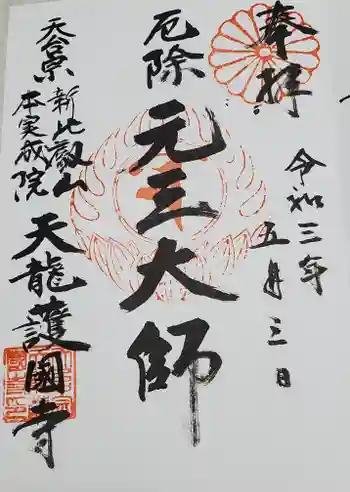 奉拝
令和三年
五月三日
厄除
元三大師
天台宗
新比叡山
本実成院
天龍護國寺